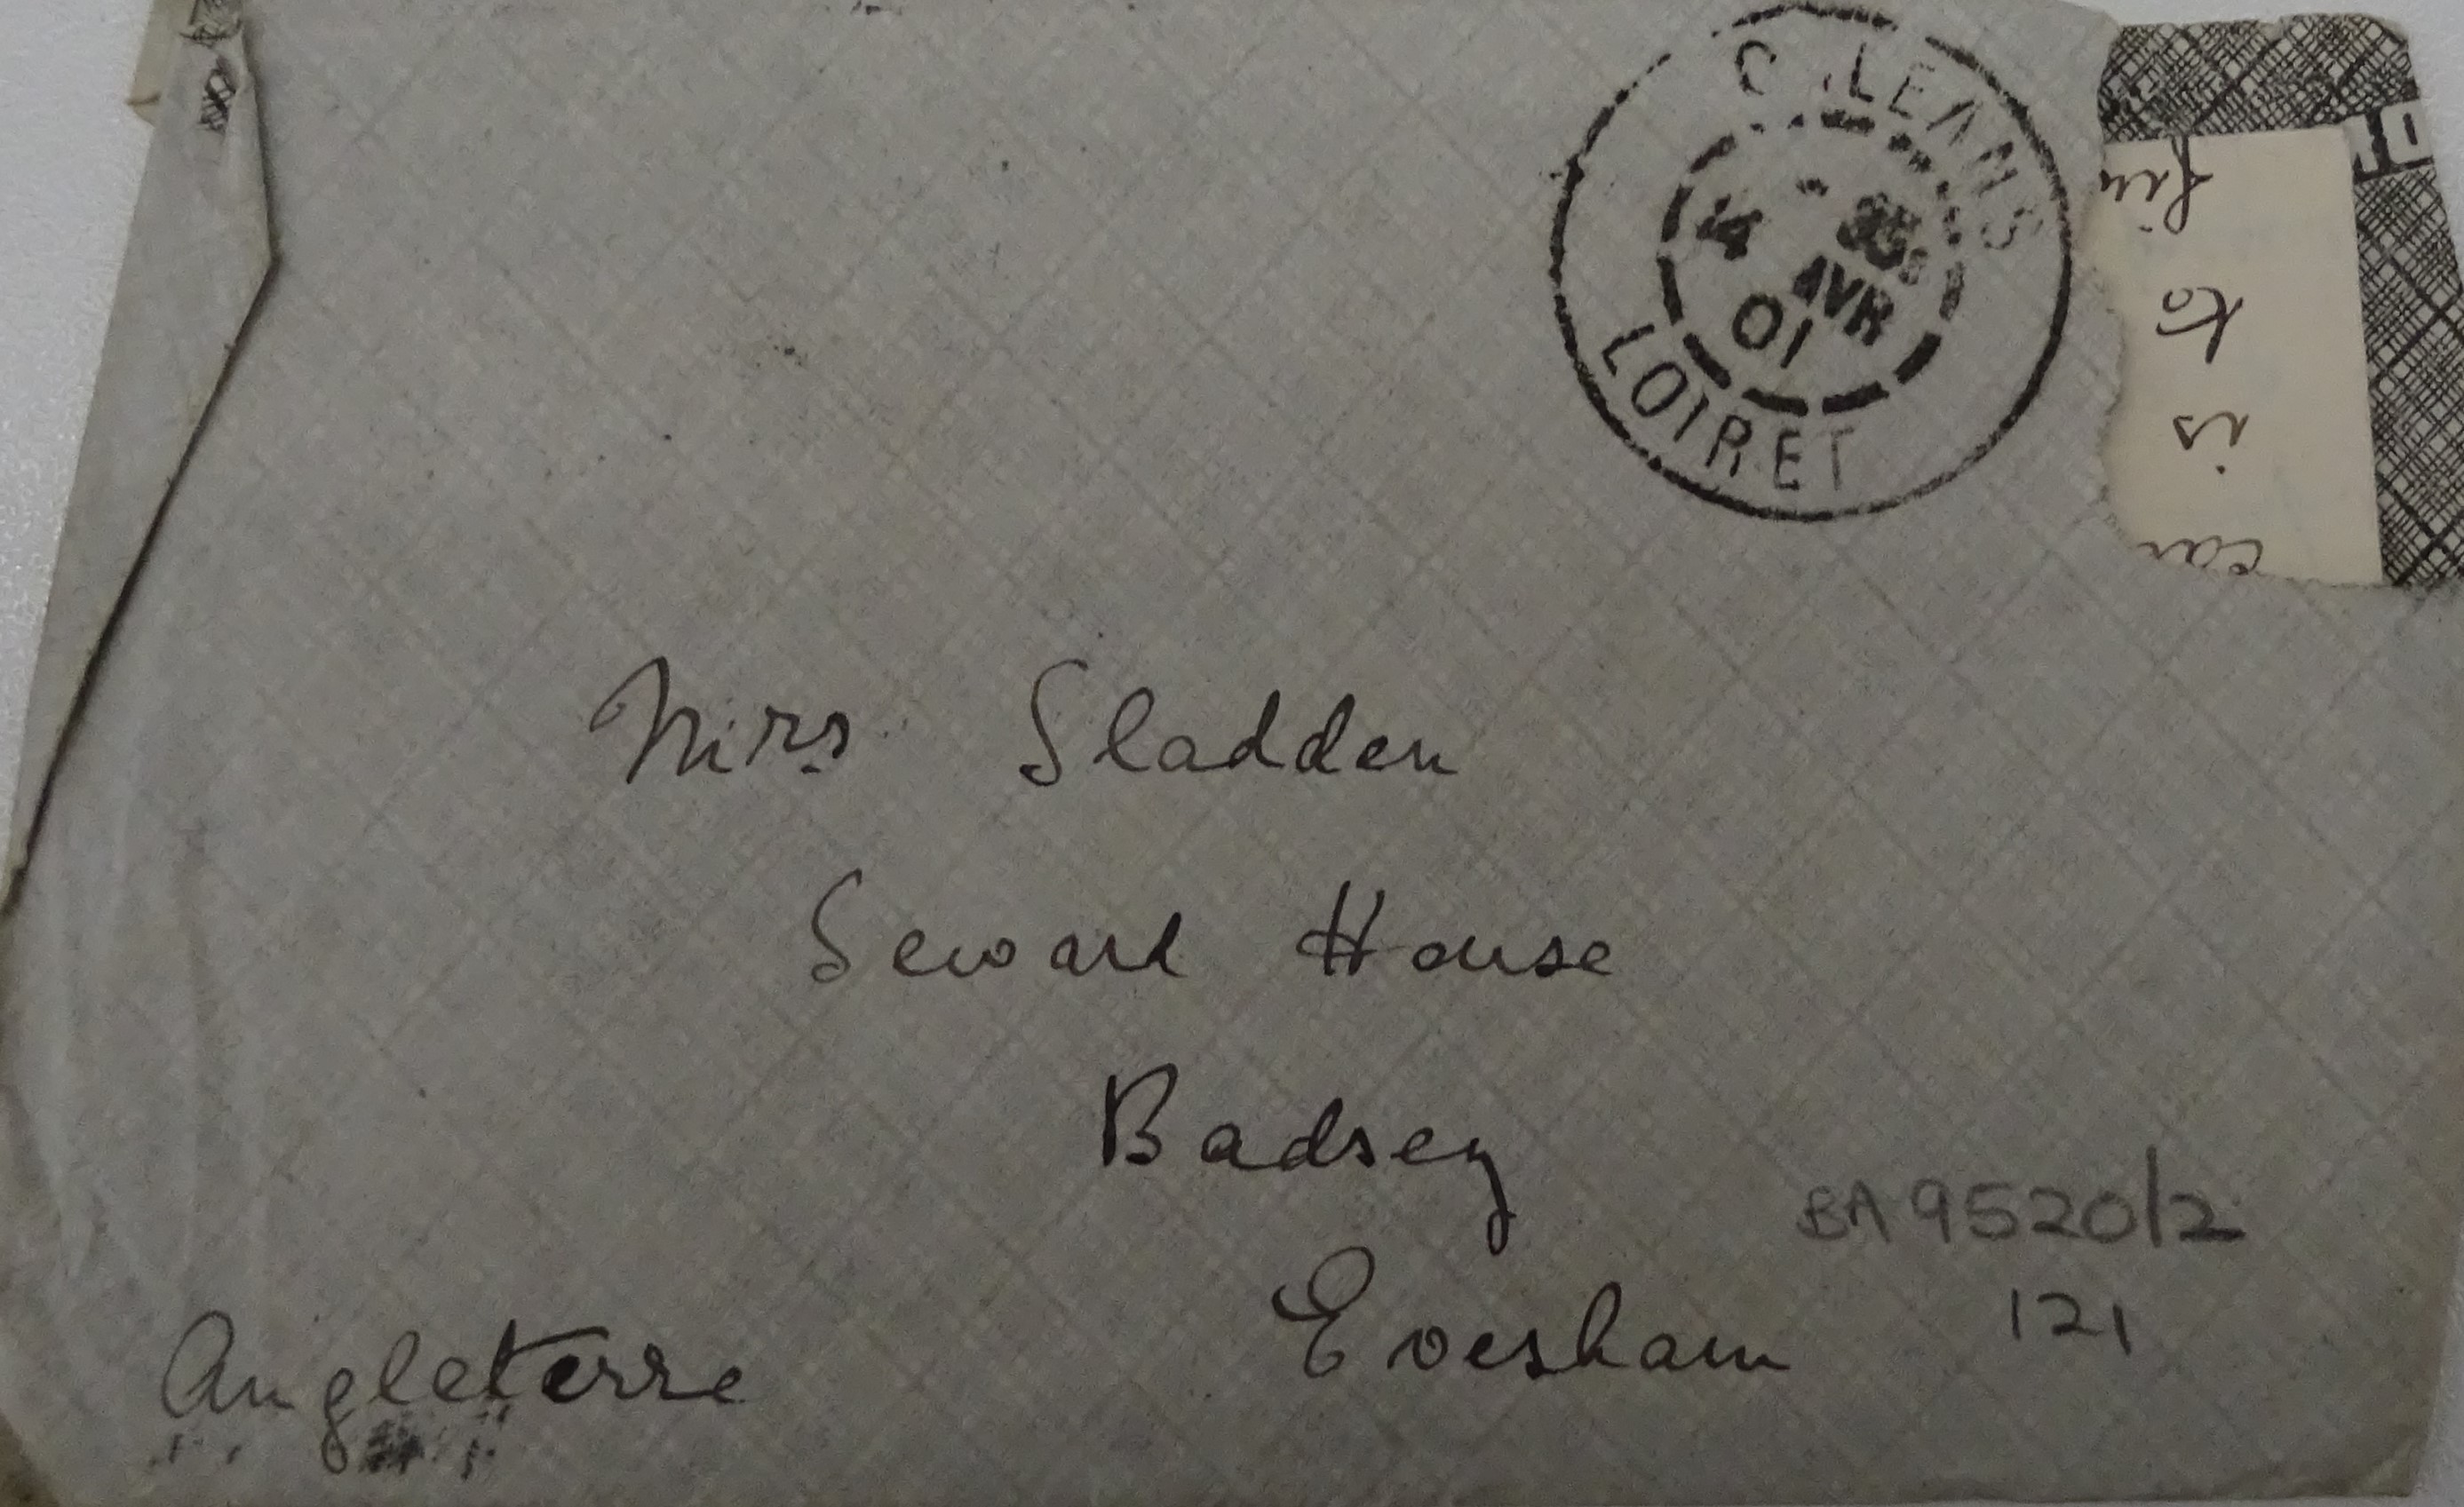 ORLEANS
AVR
01
LOIRET
to
is
Mrs. Sladden
Seward House
Badsey
Evesham
Angleterre
BA 9520/2
121